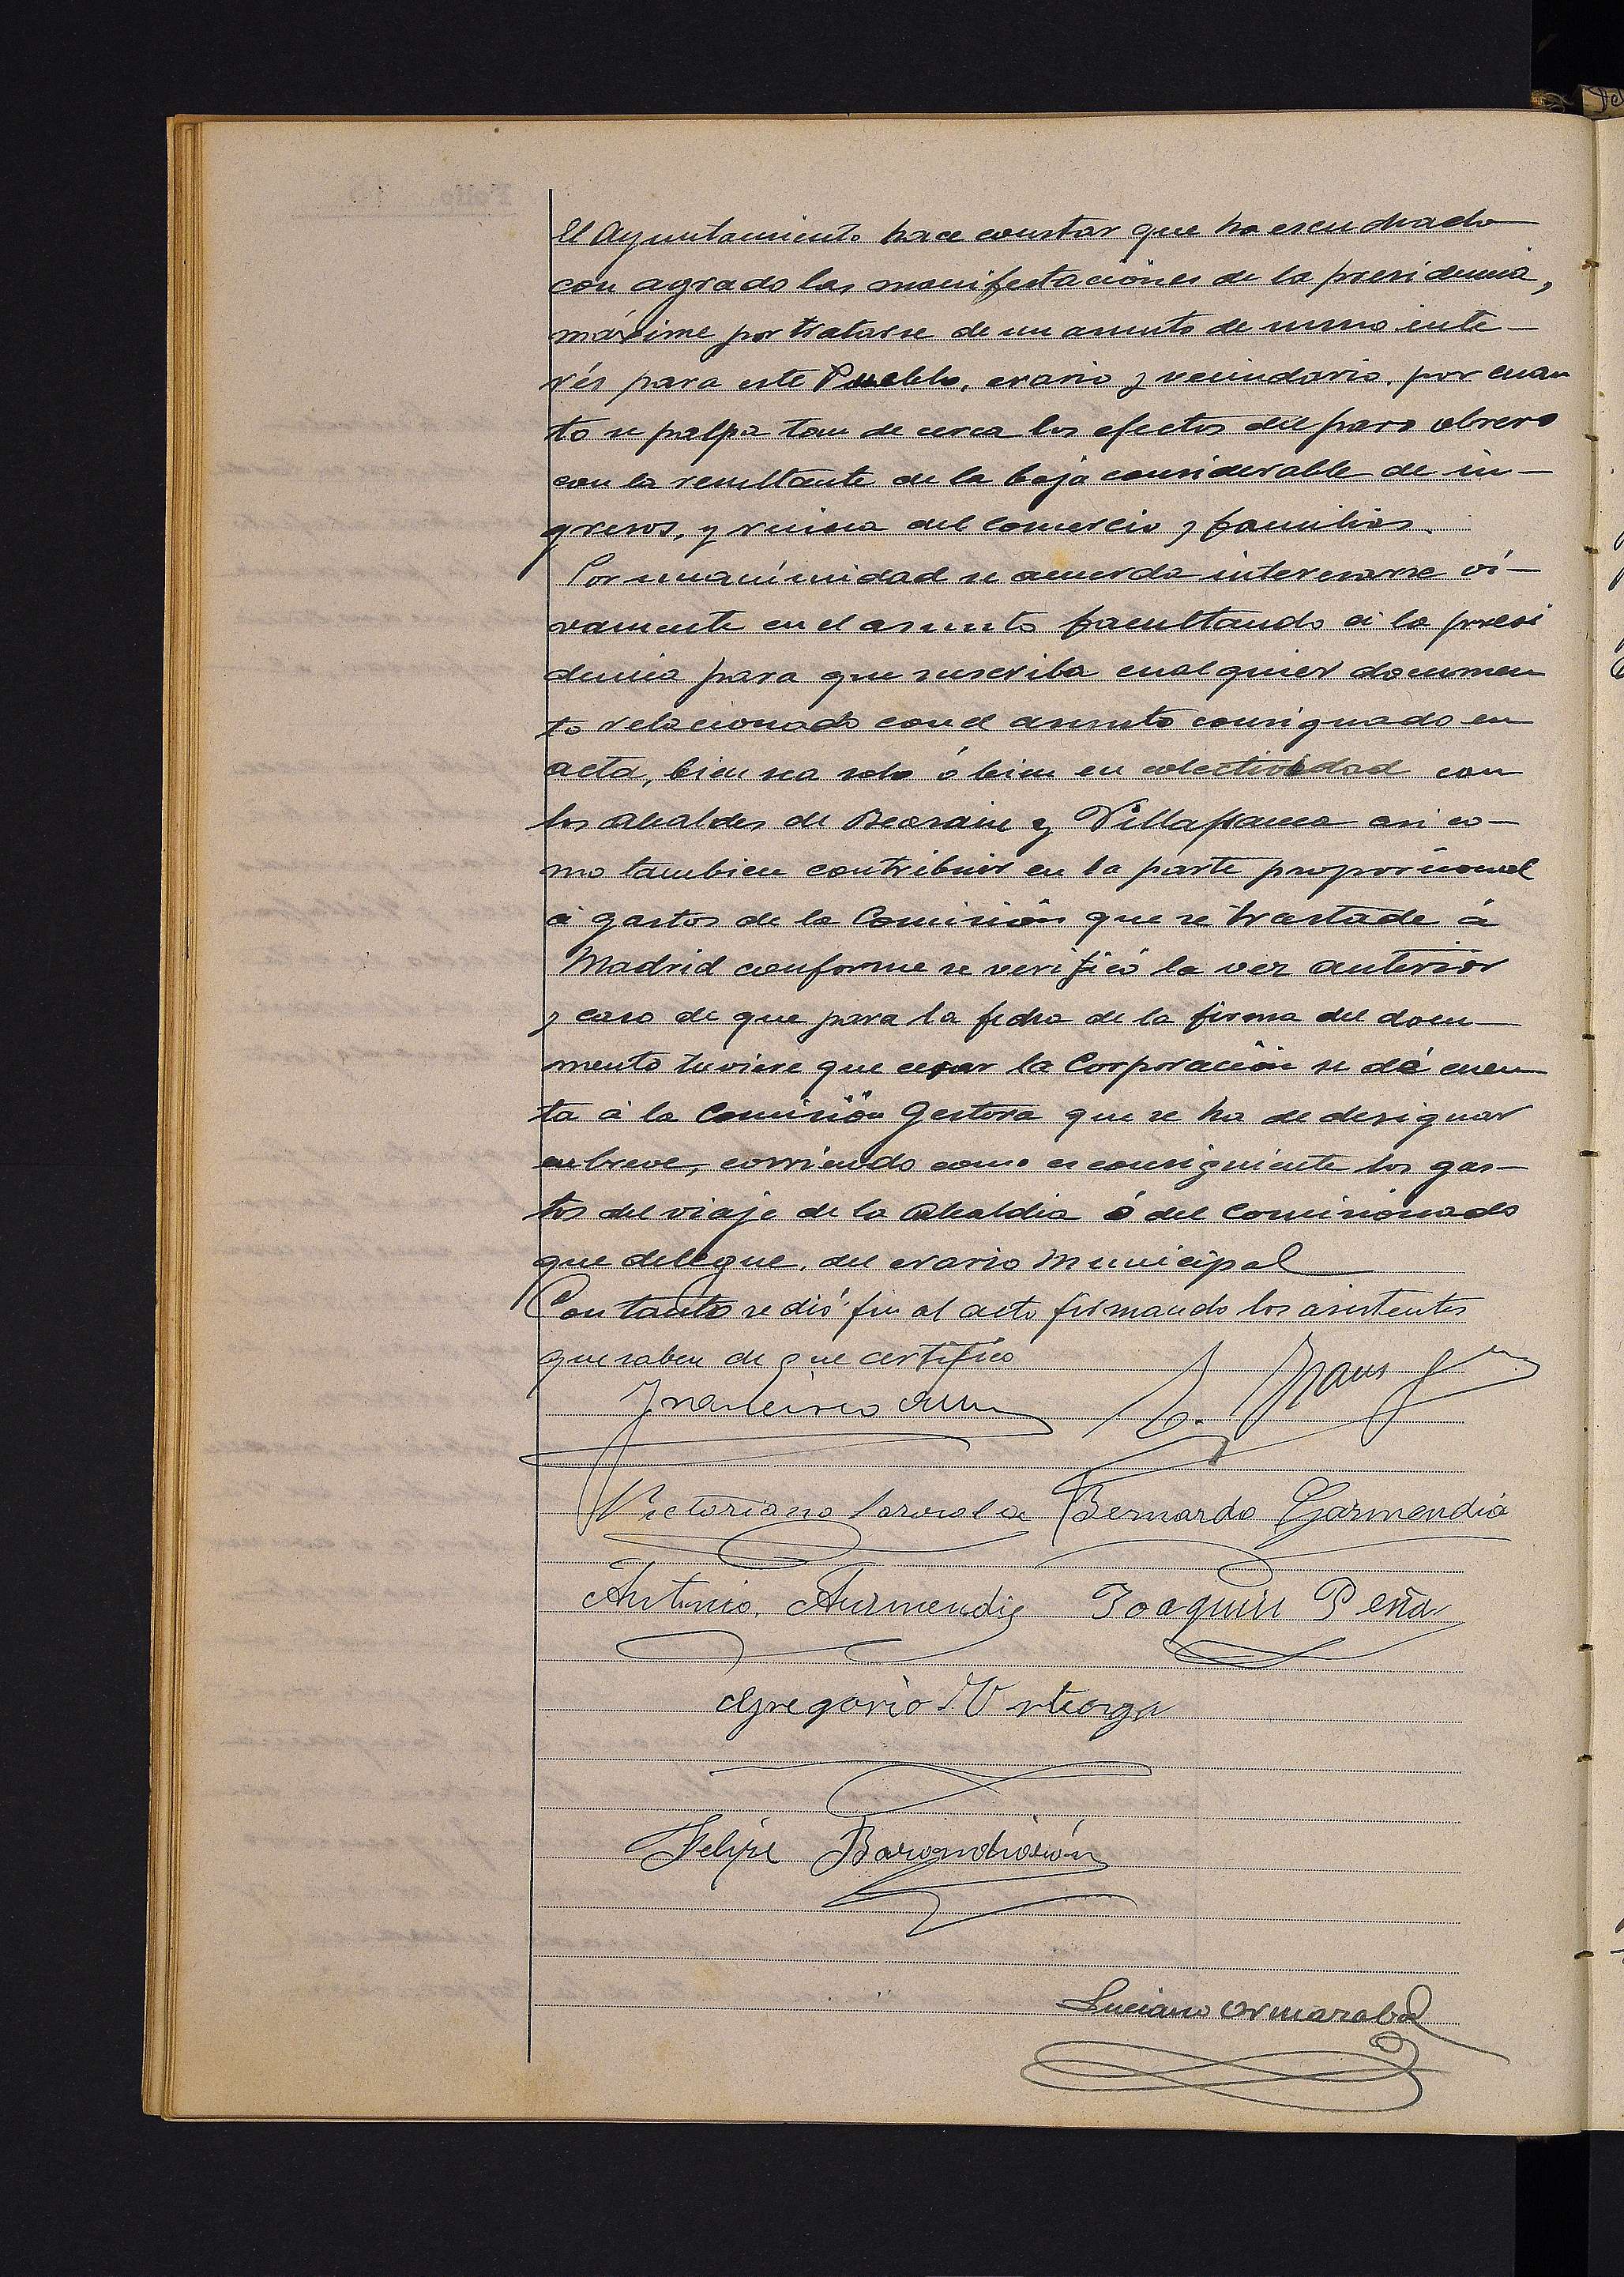 El Ayuntamiento hace constar que ha escuchado
con agrado las manifestaciones de la presidencia,
máxime por tratarse de un asunto de sumo inte-
rés para este Pueblo, erario y vecindario, por cuan
to se palpa tan de cerca los efectos del paro obrero
con la resultante de la baja considerable de in-
gresos, y ruina del comercio y familias.
Por unanimidad se acuerda interesarse vi-
vamente en el asunto facultando á la presi
dencia para que suscriba cualquier documen
to relacionado con el asunto consignado en
acta, bien sea solo ó bien en colectividad con
los alcaldes de Beasain y Villafranca asi co-
mo tambien contribuir en la parte proporcional
á gastos de la Comisión que se traslade á
Madrid conforme se verificó la vez anterior
y caso de que para la fecha de la firma del docu-
mento tuviere que cesar la Corporación se dé cuen
ta á la Comisión Gestora que se ha de designar
en breve, corriendo como es consiguiente los gas-
tos del viaje de la Alcaldia ó del Comisionado
que delegue, del erario Municipal
Con tanto se dió fin al acto firmando los asistentes
que saben de que certifico
Francisco
Victoriano Bernardo Garmendia
Antonio Joaquin Peña
Gregorio Urteaga
Felipe Barandiarán
Luciano Ormazabal